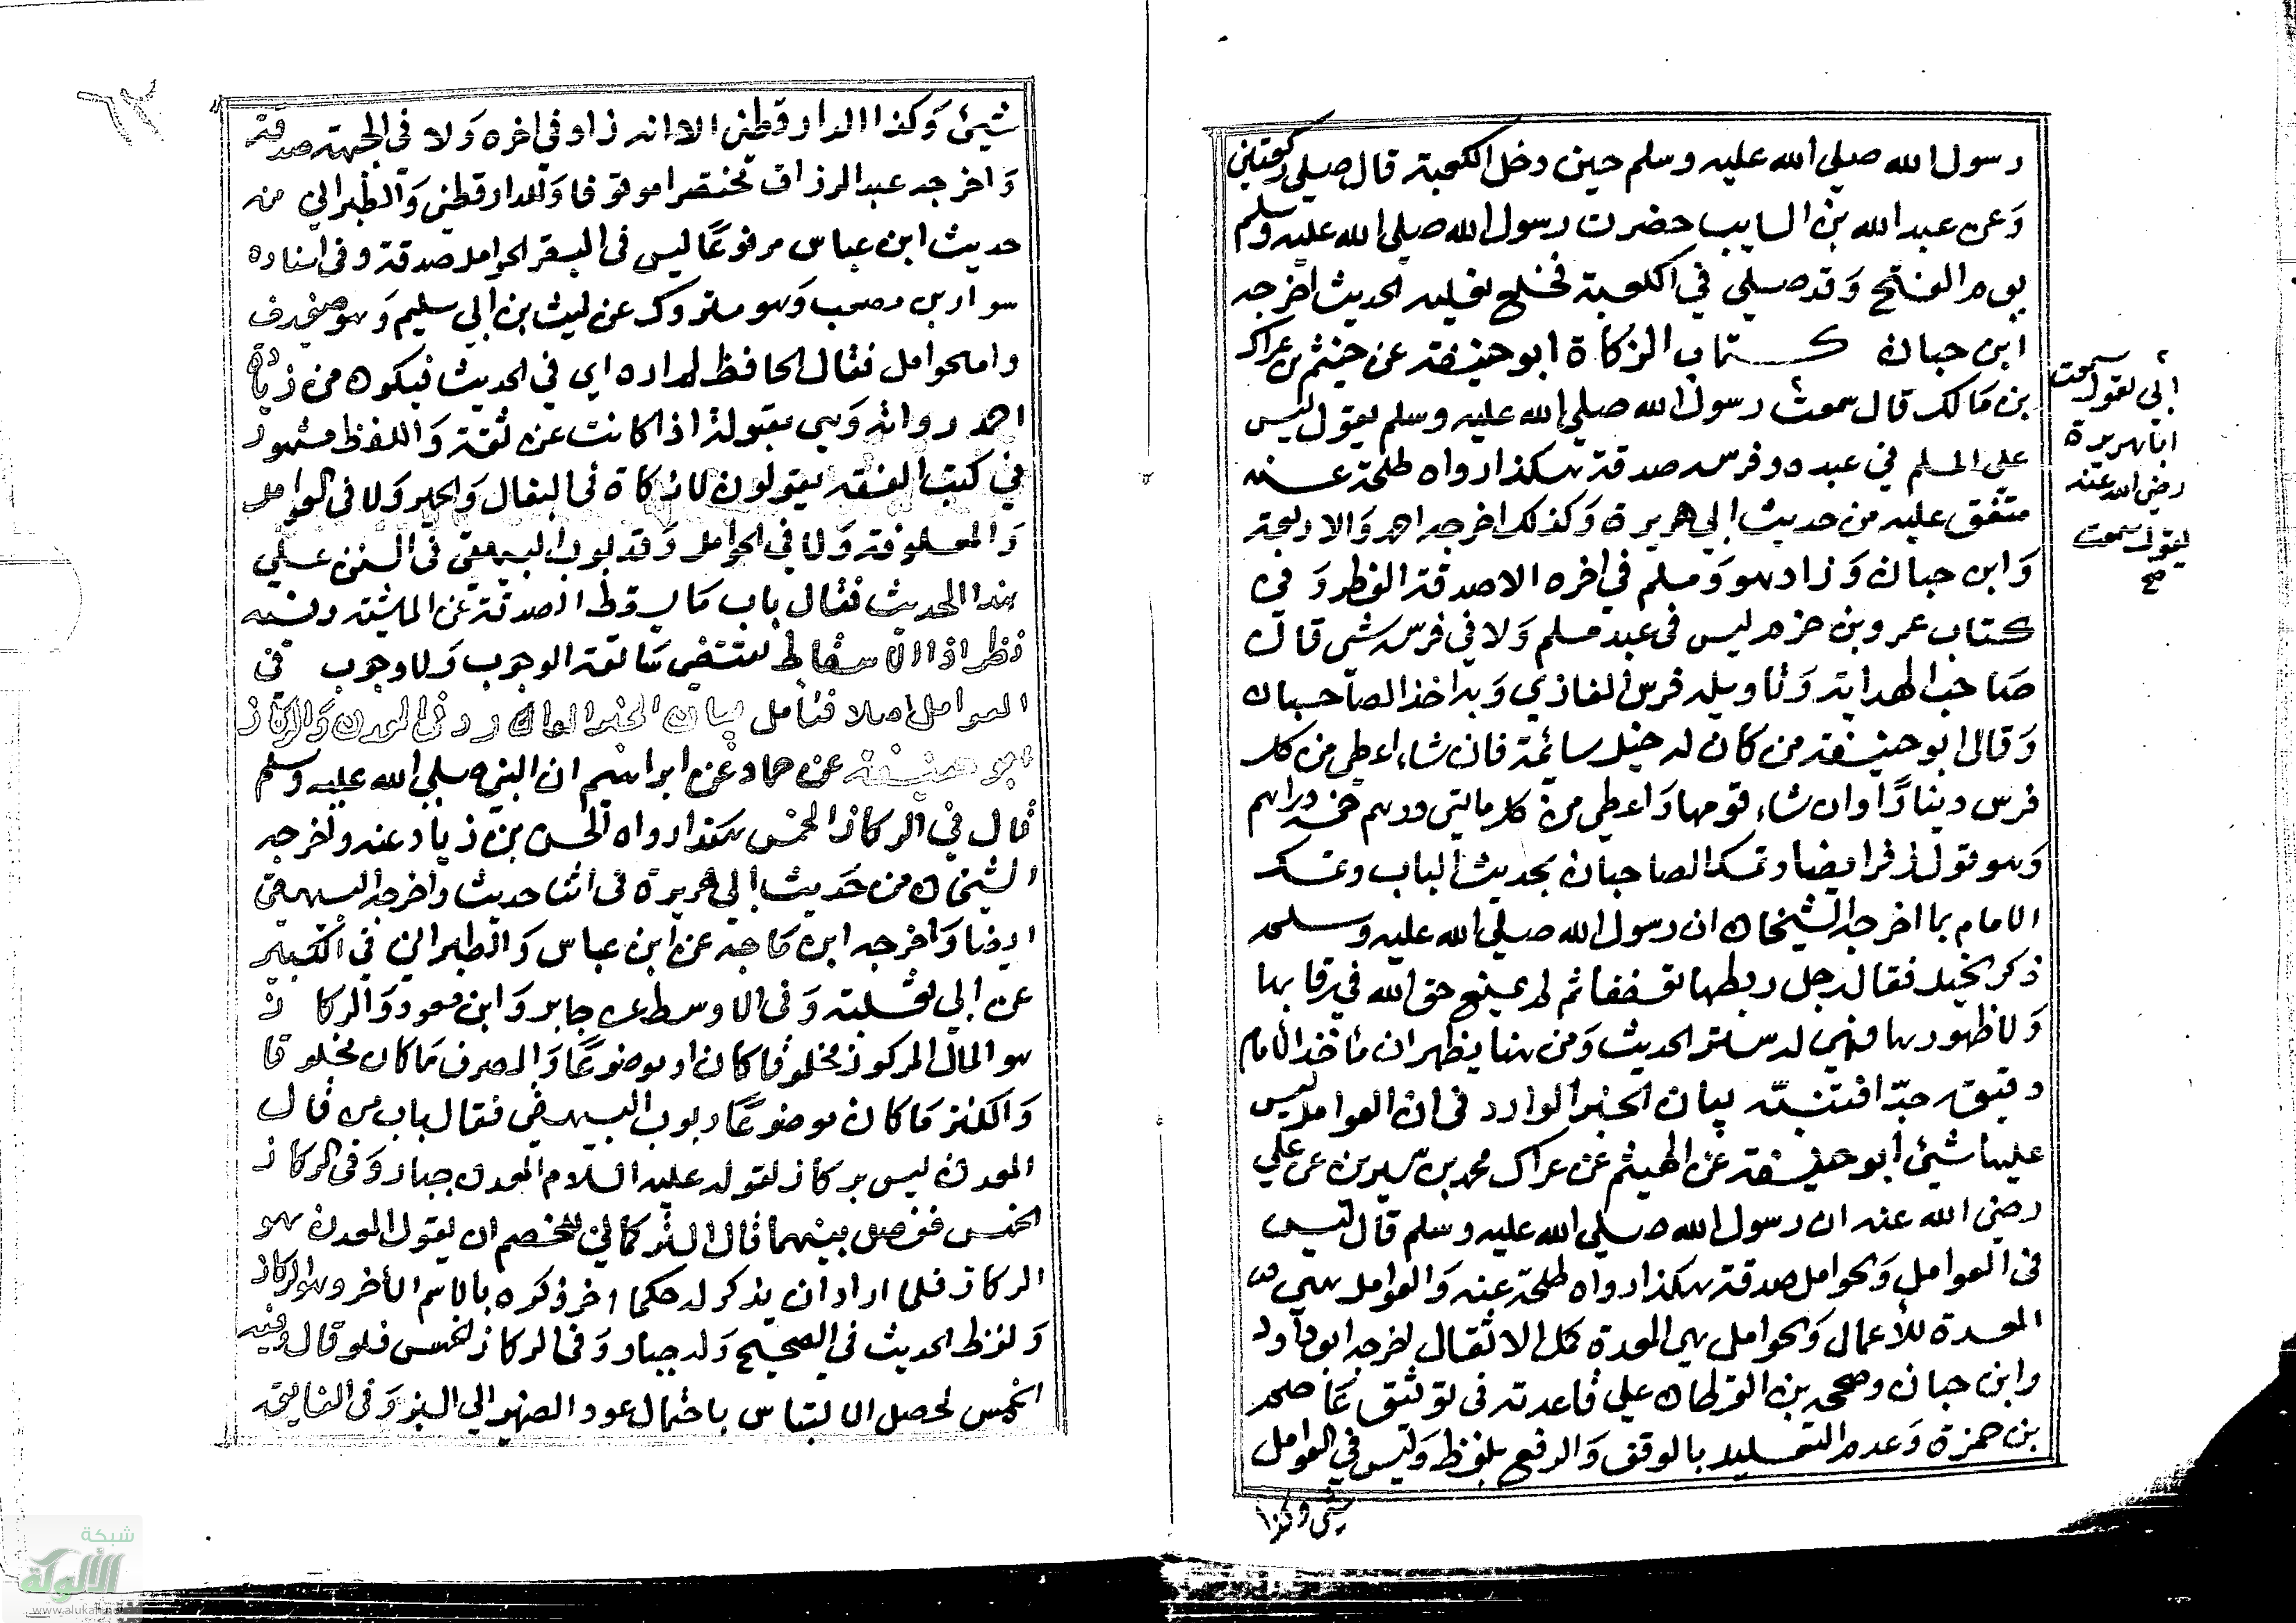 رسول الله صلي الله عليه وسلم حين دخل الكعبة قال صلي ركعتين
وعن عبد الله بن السايب حضرت رسول الله صلي الله عليه وسلم
يوم الفتح وقد صلي في الكعبة فخلع نعليه الحديث اخرجه
ابن حبان كتاب الزكاة ابو حنيفة عن خيثم بن عراك
بن مالك قال سمعت رسول الله صلي الله عليه وسلم يقول ليس
علي المسلم في عبده وفرسه صدقة هكذا رواه طلحة عنه
متفق عليه من حديث ابي هريرة وكذلك اخرجه احمد والاربعة
وابن حبان وزاد هو ومسلم في اخره الا صدقة الفطر وفي
كتاب عمرو بن حزم ليس في عبد مسلم ولا في فرسه شي قال
صاحب الهداية وتاويله فرس الغازي وبه اخذ الصاحبان
وقال ابو حنيفة من كان له خيل سائمة فان شاء اعطي من كل
فرس دينارًا وان شاء قومها واعطي من كل مايتي درهم خمسة دراهم
وهو قول زفر ايضا وتمسك الصاحبان بحديث الباب وتمسك
الامام بما اخرجه الشيخان ان رسول الله صلي الله عليه وسلم
ذكر الخيل فقال رجل ربطها تعففا ثم لم يمنع حق الله في رقابها
ولا ظهورها فهي له ستر الحديث ومن هنا يظهر ان مأخذ الامام
دقيق جدّا فتنبّه بيان الخبر الوارد في ان العوامل ليس
عليها شيئ ابو حنيفة عن الهيثم عن عراك محمد بن سيرين عن علي
رضي الله عنه ان رسول الله صلي الله عليه وسلم قال ليس
في العوامل والحوامل صدقة هكذا رواه طلحة عنه والعوامل هي
المعدة للأعمال والحوامل هي المعدة لحمل الاثقال اخرجه ابو داود
وابن حبان وصححه بن القطان علي قاعدته في توثيق عاصم
بن حمزة وعدم التعليل بالوقف والرفع بلفظ وليس في العوامل
شيئ وكذا
ابي يقول سمعت
ابا هريرة
رضي الله عنه
يقول سمعت
صح
شيئ وكذا الدارقطني الا انه زاد في اخره ولا في الجبهة صدقة
واخرجه عبد الرزاق مختصرا موقوفا وللدارقطني والطبراني من
حديث ابن عباس مرفوعًا ليس في البقر الحوامل صدقة وفي اسناده
سوار بن مصعب وهو متروك عن ليث بن ابي سليم وهو ضعيف
واما الحوامل فقال الحافظ لم اره اي في الحديث فيكون من زيادة
احد رواته وهي مقبولة اذا كانت عن ثقة واللفظ مشهور
في كتب الفقه يقولون لا زكاة في البغال والحمير ولا في الحوامل
والمعلوفة ولا في الحوامل وقد بوب البيهقي في السنن علي
هذا الحديث فقال باب ما يسقط الصدقة عن الماشية وفيه
نظر اذ الاسقاط يقتضي سابقة الوجوب ولا وجوب في
العوامل اصلا فتأمل بيان الخبر الوارد في المعدن والركاز
ابو حنيفة عن حماد عن ابراهيم ان النبي صلي الله عليه وسلم
قال في الركاز الخمس هكذا رواه الحسن بن زياد عنه واخرجه
الشيخان من حديث ابي هريرة في اثنا حديث واخرجه البيهقي
ايضا واخرجه ابن ماجه عن ابن عباس والطبراني في الكبير
عن ابي ثعلبة وفي الاوسط عن جابر وابن مسعود والركاز
هو المال المركوز مخلوقا كان او موضوعًا والمعدن ما كان مخلوقا
والكنز ما كان موضوعًا وبوب البيهقي فقال باب من قال
المعدن ليس بركاز لقوله عليه السلام المعدن جبار وفي الركاز
الخمس ففصل بينهما قال التركماني للخصم ان يقول المعدن هو
الركاز فلما اراد ان يذكر له حكما اخر ذكره بالاسم الاخر وهو الركاز
ولفظ الحديث في الصحيح وله جبار وفي الركاز الخمس فلو قال وفيه
الخمس لحصل الالتباس باحتمال عود الضمير الي البئر وفي الفايق
شبكة
الألوكة